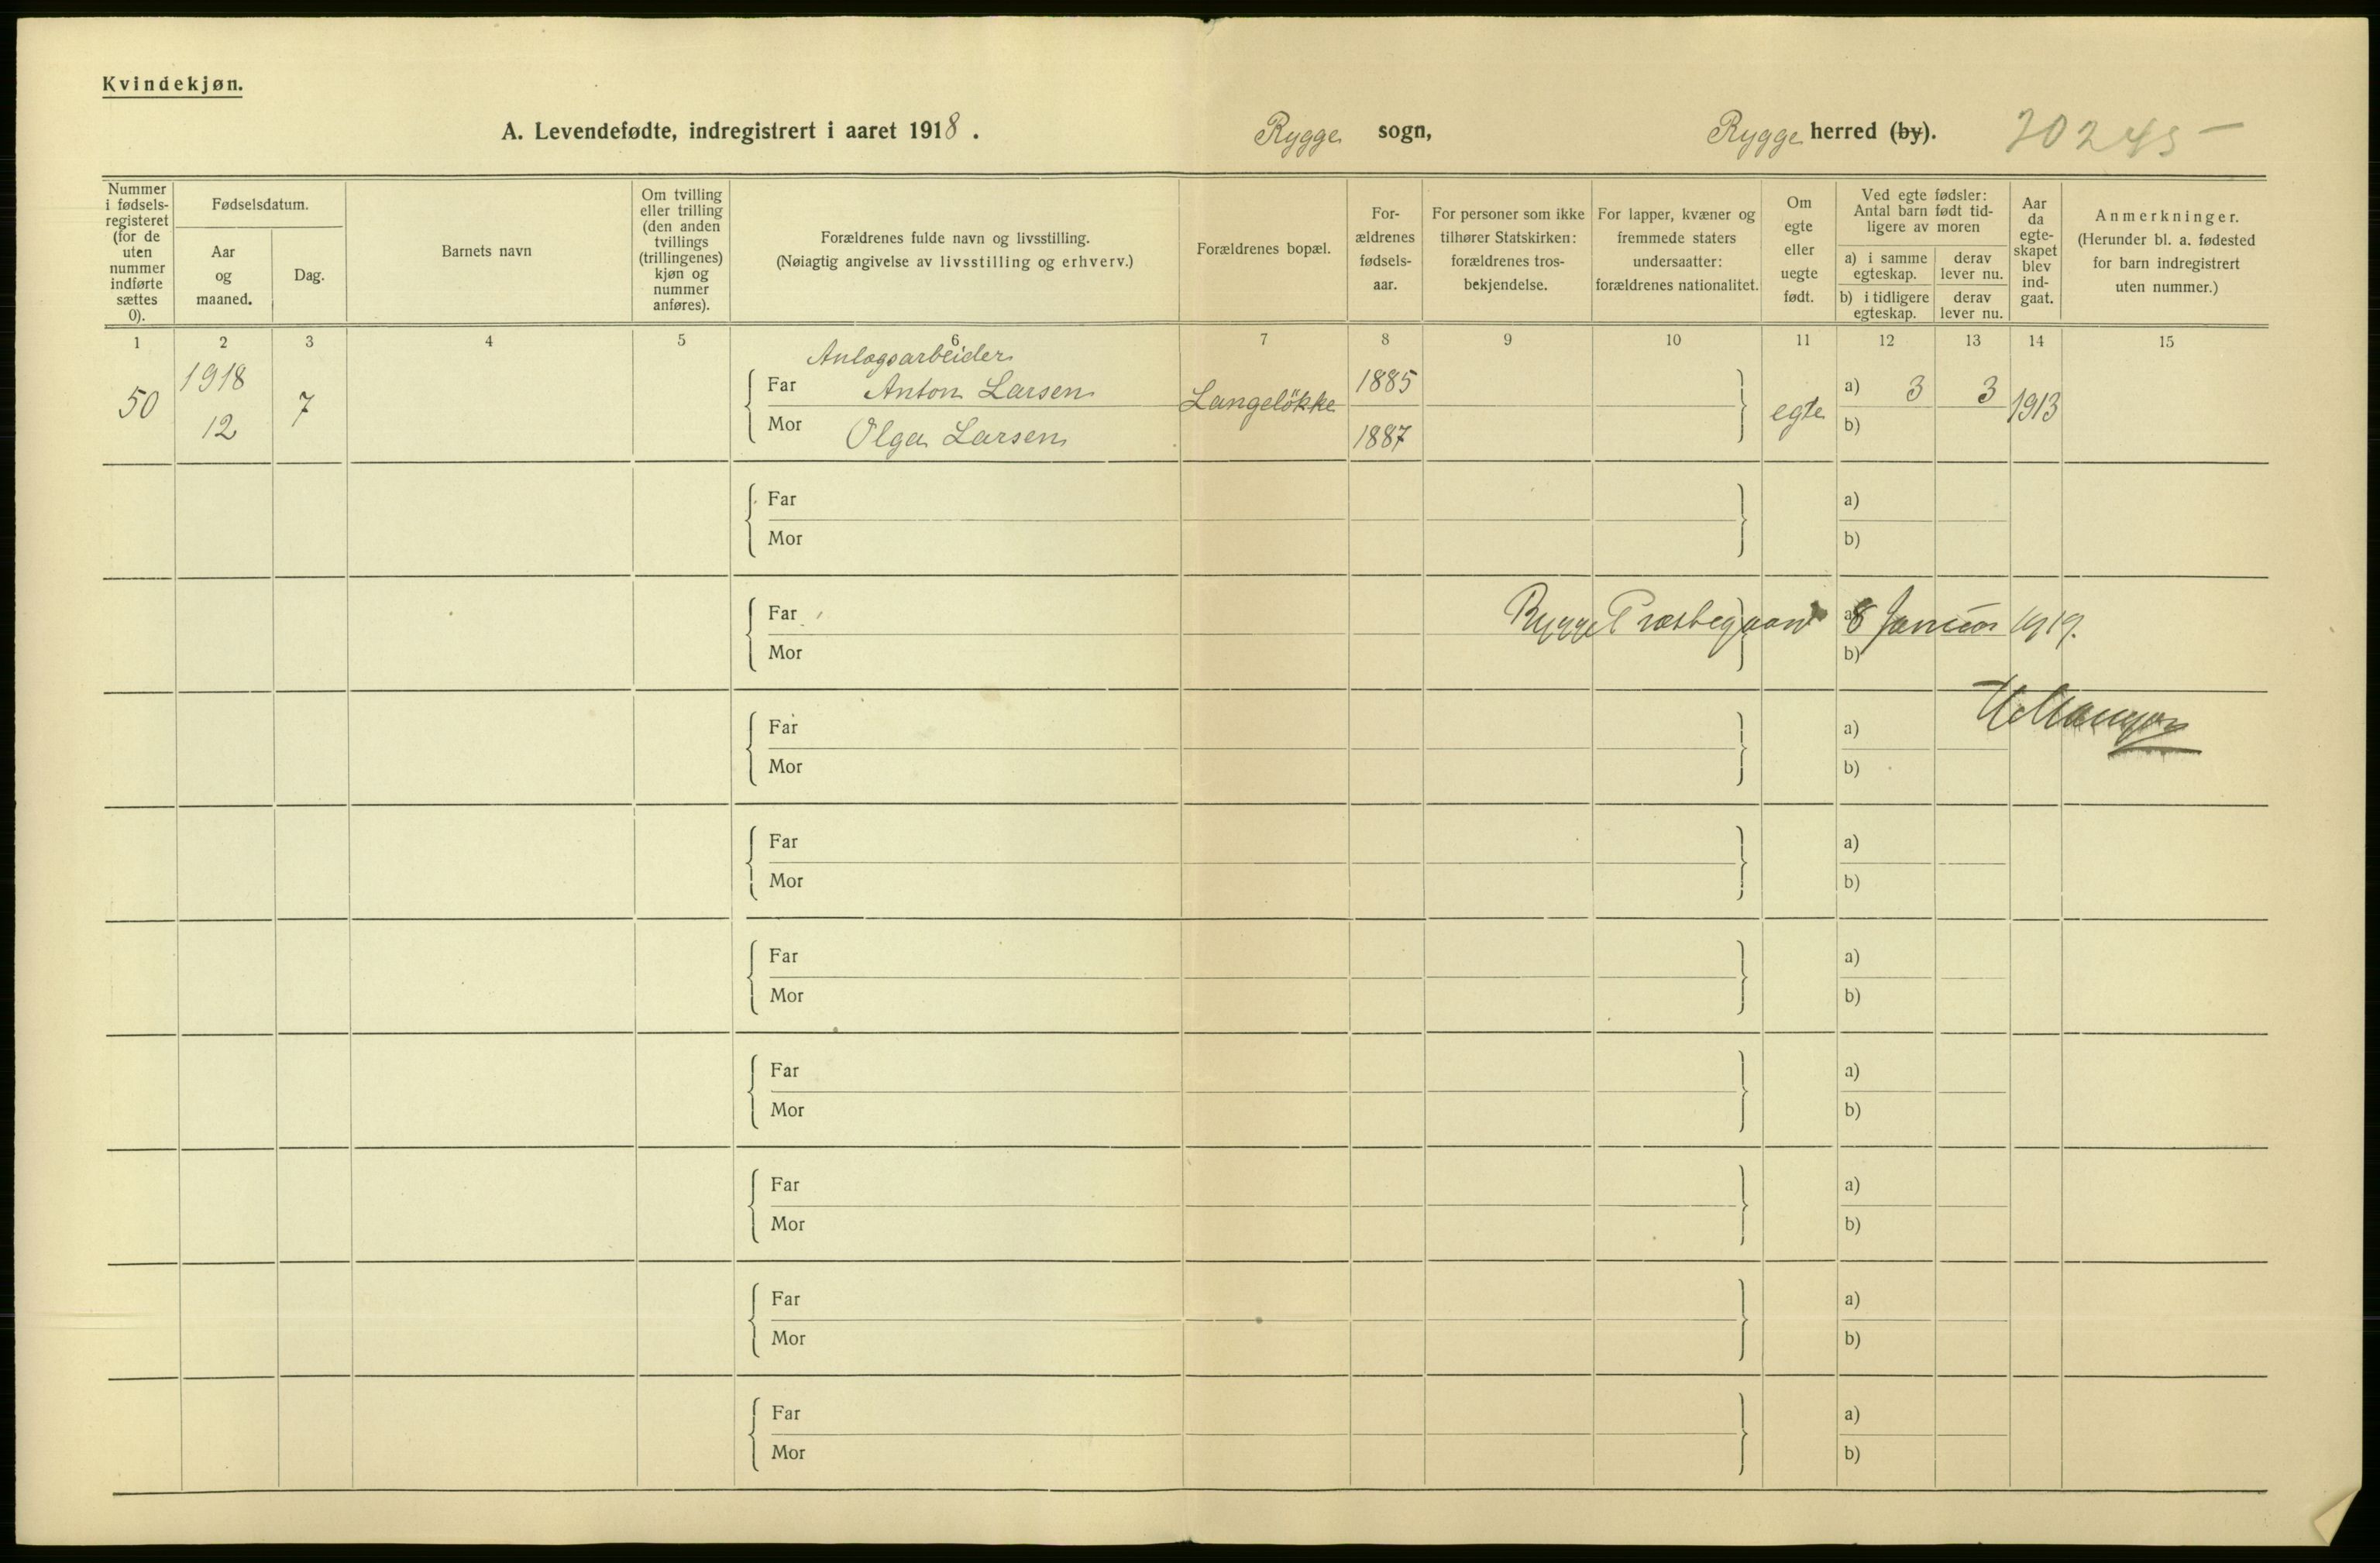 Kvindekjøn.
A. Levendefødte, indregistrert i aaret 1918.
Rygge sogn,
Rygge herred (by).
Nummer i fødsels-registeret (for de uten nummer indførte sættes 0).
Fødselsdatum.
Aar og maaned.
Dag.
Barnets navn
Om tvilling eller trilling (den anden tvillings (trillingenes) kjøn og nummer anføres).
Forældrenes fulde navn og livsstilling.
(Nøiagtig angivelse av livsstilling og erhverv.)
Forældrenes bopæl.
For-ældrenes fødsels-aar.
For personer som ikke tilhører Statskirken: forældrenes tros-bekjendelse.
For lapper, kvæner og fremmede staters undersaatter: forældrenes nationalitet.
Om egte eller uegte født.
Ved egte fødsler: Antal barn født tid-ligere av moren
a) i samme egteskap.
derav lever nu.
b) i tidligere egteskap.
derav lever nu.
Aar da egte-skapet blev ind-gaat.
Anmerkninger.
(Herunder bl. a. fødested for barn indregistrert uten nummer.)
1 2 3 4 5 6 7 8 9 10 11 12 13 14 15
Anlægsarbeider
50 1918 12 7
Far Anton Larsen
Mor Olga Larsen
Langeløkke
1885
1887
egte
a) 3 3
b)
1913
Far a)
Mor b)
Far Rygge Præstegaard a) 8 Januar 1919.
Mor b)
Far a)
Mor b)
Far a)
Mor b)
Far a)
Mor b)
Far a)
Mor b)
Far a)
Mor b)
Far a)
Mor b)
Far a)
Mor b)